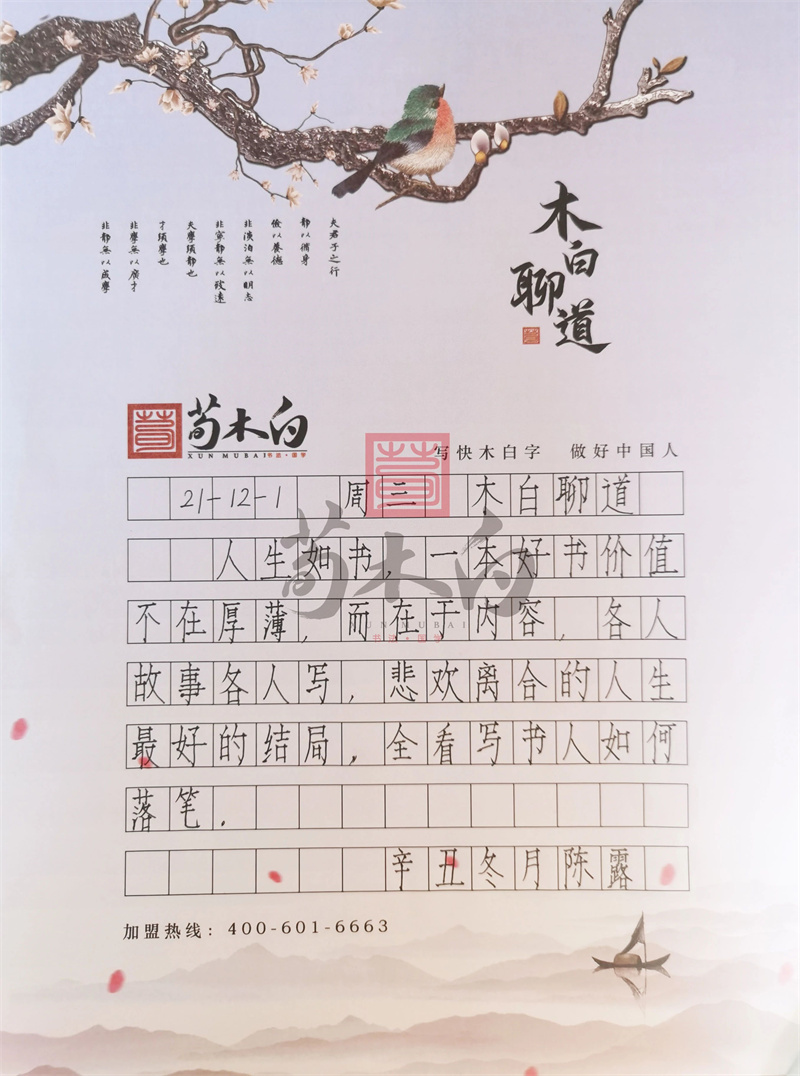 夫君子之行
静以修身
俭以养德
非淡泊无以明志
非宁静无以致远
夫学须静也
才须学也
非学无以广才
非静无以成学
木白聊道
荀
荀木白
XUN MUBAI 书法·国学
写快木白字 做好中国人
21-12-1 周三 木白聊道
人生如书,一本好书价值
不在厚薄,而在于内容,各人
故事各人写,悲欢离合的人生
最好的结局,全看写书人如何
落笔.
辛丑冬月陈露
荀
荀木白
XUN MUBAI
书法·国学
加盟热线:400-601-6663